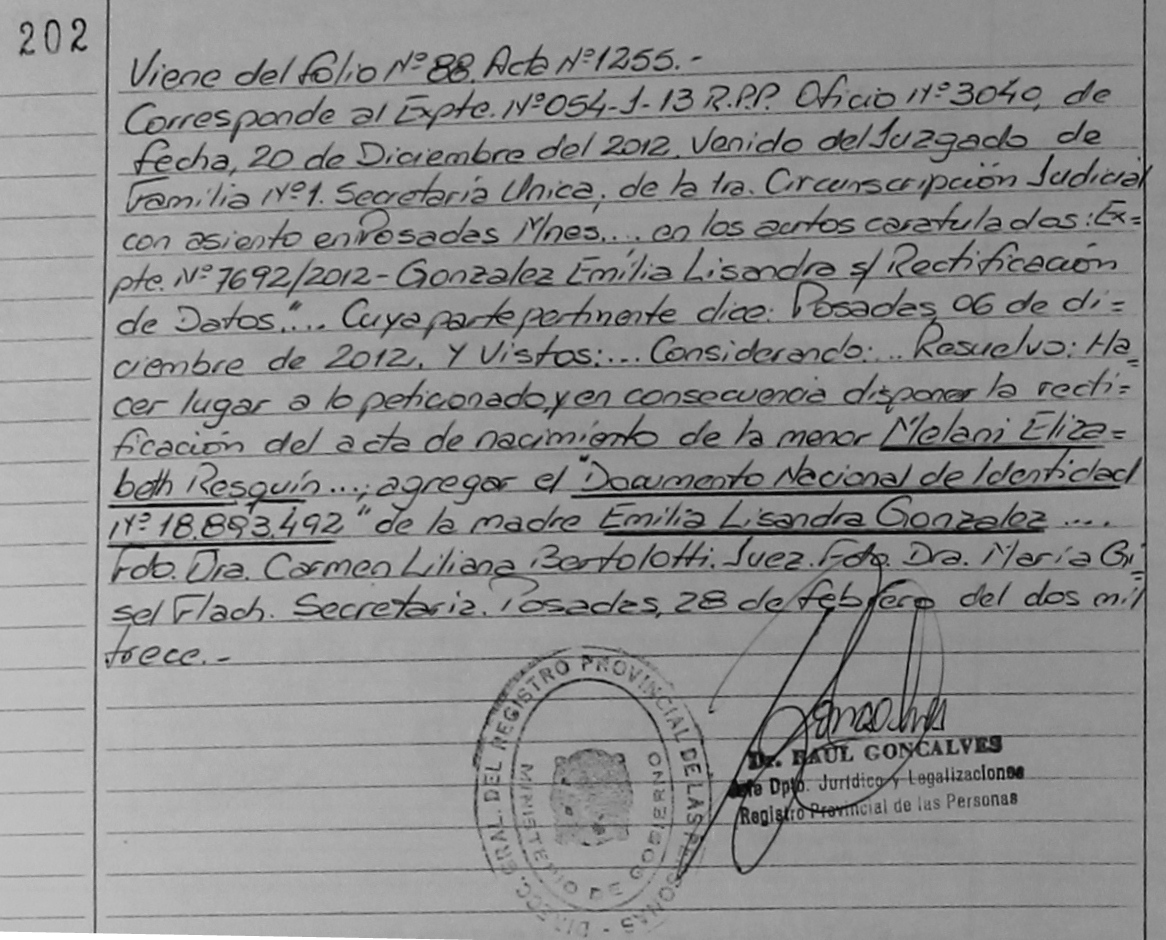 202
Viene del folio Nº 88. Acta Nº 1255.-
Corresponde al Expte. Nº 054-J-13 R.P.P. Oficio Nº 3040, de
fecha, 20 de Diciembre del 2012. Venido del Juzgado de
Familia Nº 1. Secretaría Unica, de la 1ra. Circunscripción Judicial
con asiento en Posadas Mnes... en los autos caratulados: Ex=
pte. Nº 7692/2012 - Gonzalez Emilia Lisandra s/ Rectificación
de Datos."... Cuya parte pertinente dice: Posadas, 06 de di=
ciembre de 2012. Y Vistos:... Considerando:... Resuelvo: Ha=
cer lugar a lo peticionado, y en consecuencia disponer la recti=
ficación del acta de nacimiento de la menor Melani Eliza=
beth Resquín...; agregar el "Documento Nacional de Identidad
Nº 18.893.492" de la madre Emilia Lisandra Gonzalez....
Fdo. Dra. Carmen Liliana Bertolotti. Juez. Fdo. Dra. María Gri
sel Flach. Secretaria. Posadas, 28 de febrero del dos mil
trece.-
DIRECC. GRAL. DEL REGISTRO PROVINCIAL DE LAS PERSONAS -
MINISTERIO DE GOBIERNO
Dr. RAUL GONCALVES
Jefe Dpto. Jurídico y Legalizaciones
Registro Provincial de las Personas